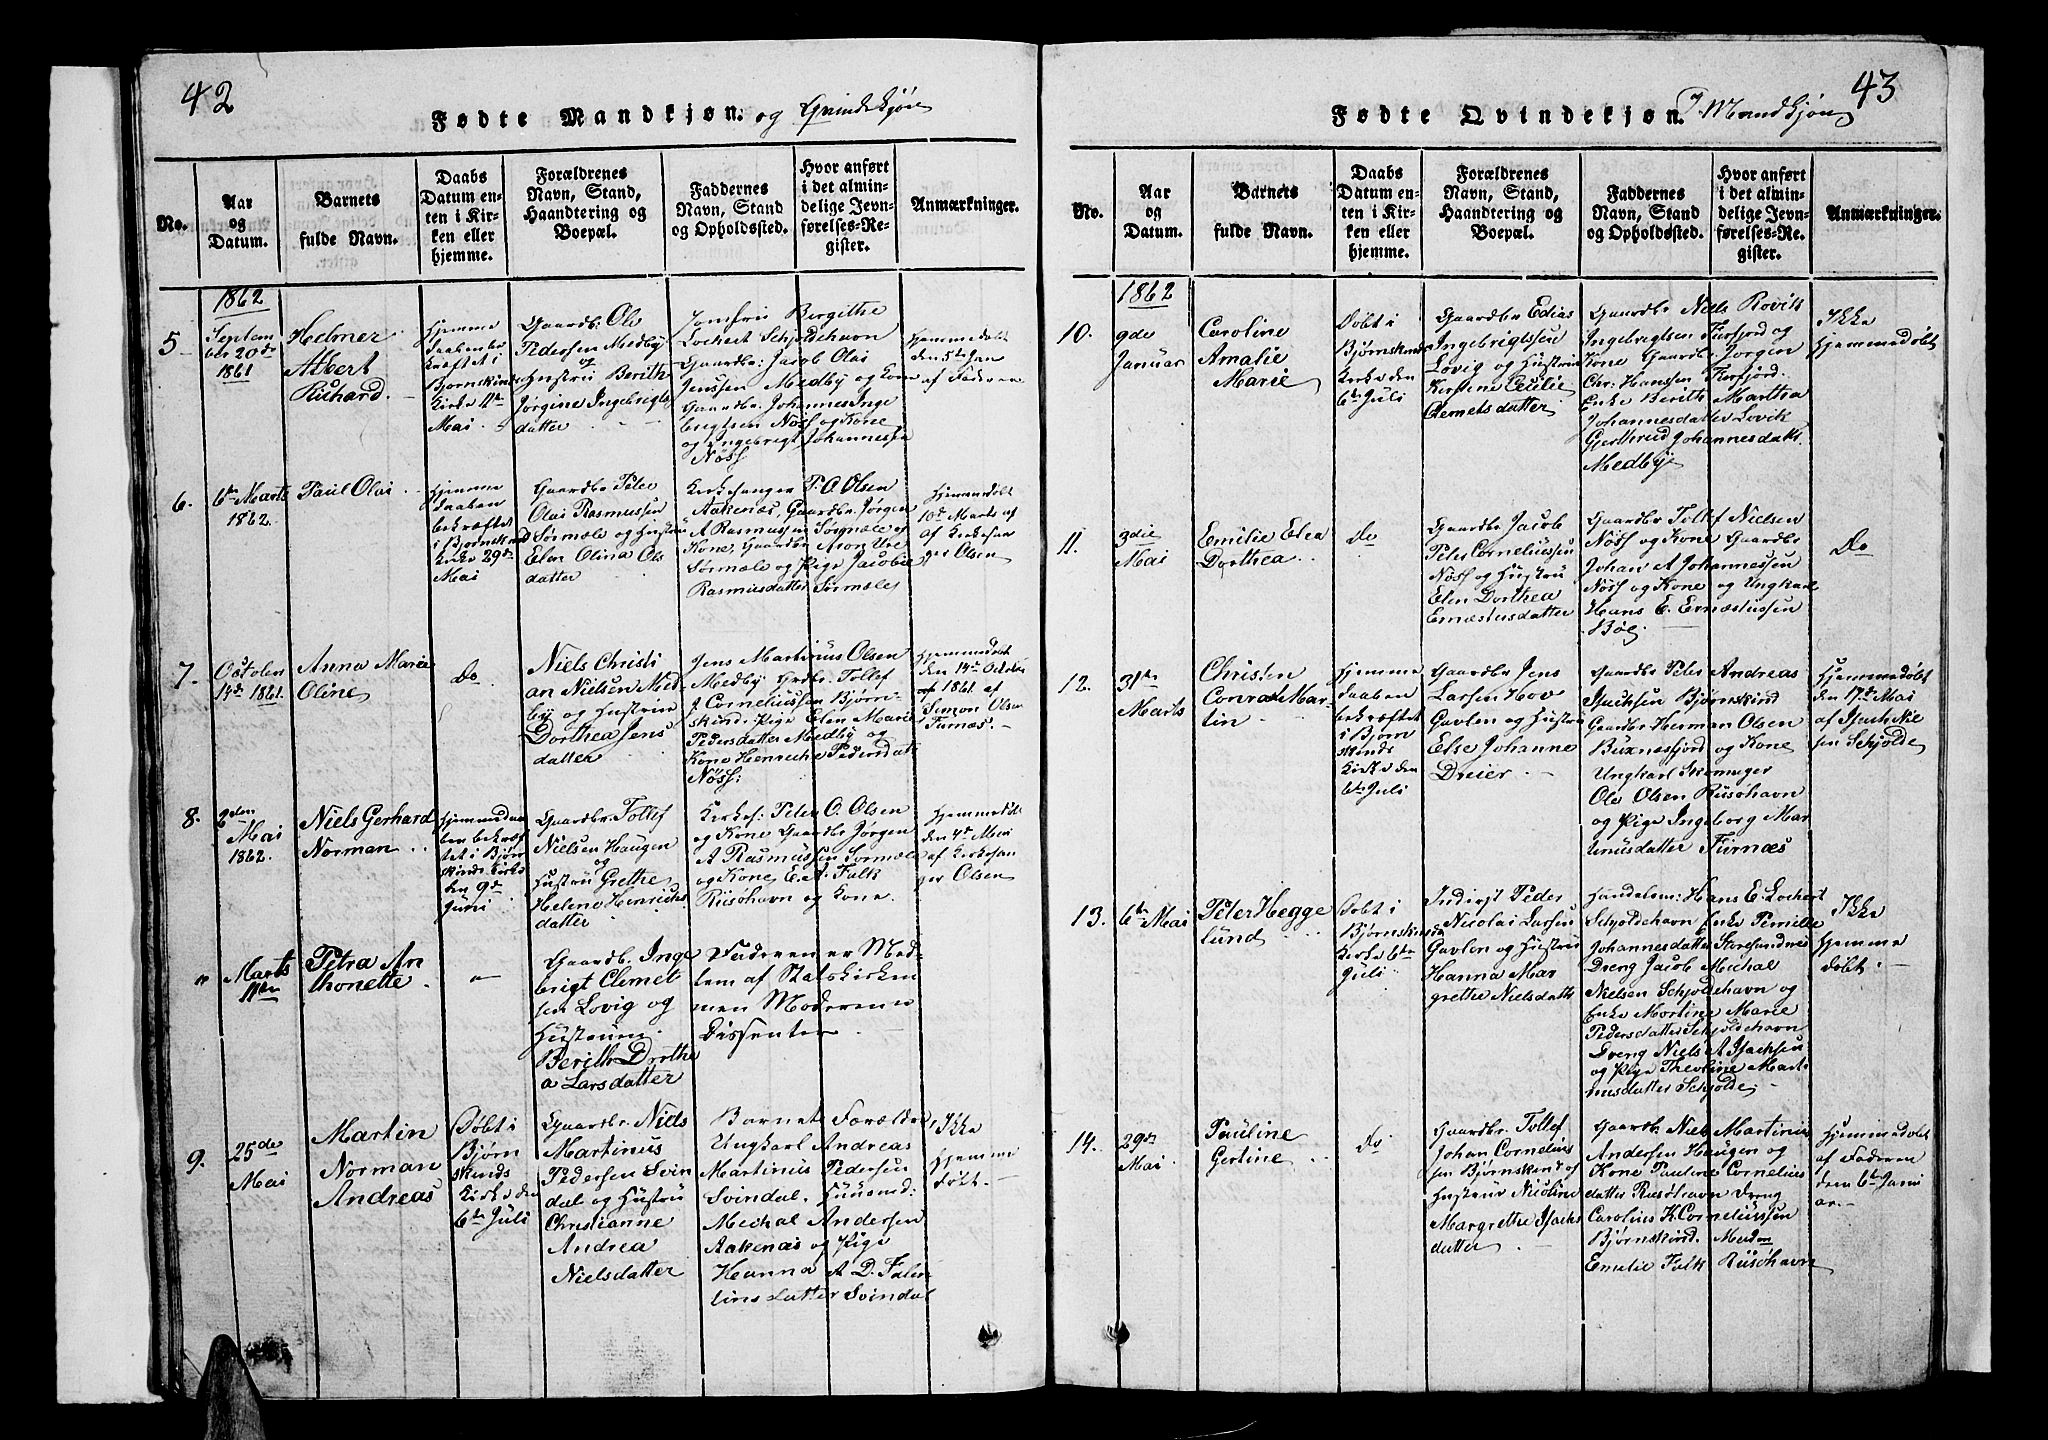 42
Fødte Mandkjøn. og Qvindekjøn
No.
Aar
og
Datum.
Barnets
fulde Navn.
Daabs
Datum en-
ten i Kir-
ken eller
hjemme.
Forældrenes
Navn, Stand,
Haandtering og
Boepæl.
Faddernes
Navn, Stand
og Opholdssted.
Hvor anført
i det almin-
delige Jevn-
førelses-Re-
gister.
Anmærkninger.
1862
5
Septem
ber 20de
1861
Helmer
Albert
Richard.
hjemme
daaben be
kræftet i
Bjørnskinds
Kirke 11te
Mai.
Gaardb: Ole
Pedersen Medby
og
Hustru Berith
Jørgine Ingebrigts
datter
Jomfru Bergithe
Lochert Schjoldehavn
Gaardbr: Jacob Olai
Jenssen Medby og Kone
Gaardbr: Johannes Inge
brigtsen Nöss og Kone
og Ingebrigt Johannessen
Nöss
hjemmedøbt
den 5te Jan
af Faderen
6.
6te Marts
1862.
Paul Olai
hjemme
daaben
bekræftet
i Bjørnskinds
Kirke 29de
Mai
Gaardbr Peter
Olai Rasmussen
Sørmæle og Hustru
Elen Olina Ols
datter
Kirkesanger P. O. Olsen
Aakenæs, Gaardbr. Jørgen
A Rasmussen Sørmæle og
Kone, Gaardbr Aron Ure
Sørmæle og Pige Jacobie
Rasmusdatter Sørmæle
hjemmedøbt
10de Marts af
af Kirkesan
ger Olsen
7.
October
14de 1861.
Anna Marie
Oline
Do
Niels Christi
an Nielsen Med
by og Hustru
Dorthea Jens
datter
Jens Martinus Olsen
Medby Grdbr. Tollef
J. Corneliussen Bjørn-
skind: Pige Elen Marie
Pedersdatter Medby og
Kone Henriche Pedersdatt
Nöss:
hjemmedøbt
den 14de October
1861. af
Simon Olsen
Furnæs.
8.
2den
Mai
1862.
Niels Gerhard
Norman
hjemmedaa
ben bekræf
tet i Bjørn
skinds Kirke
den 9de
Juni
Gaardbr Tollef
Nielsen Haugen
og
Hustru Grethe
Helene Henrichs
datter
Kirkes: Peter O. Olsen
og Kone Gaardbr Jørgen
A Rasmussen Sormæle
og Kone E. A. Falk
Riisöhavn og Kone.
hjemmedöbt
den 4de Mai
af Kirkesan
ger Olsen
"
Marts
11te
Petra An
thonette.
"
Gaardb. Inge
brigt Clemet
sen Lovig og
Hustruen.
Berith Dorthe
a Larsdatter
Faderen er Med-
lem af Statskirken
men Moderen
Dissenter.
9.
25de
Mai
Martin
Norman
Andreas
Döbt i
Bjørn
skinds
Kirke den
6te Juli
Gaardbr. Niels
Martinus
Pedersen Svin
dal og Hustru
Christianne
Andrea
Nielsdatter
Barnets Forældre,
Ungkarl Andreas
Martinus Pedersen
Svindal. Huusmd:
Michal Andersen
Aakenæs og Pige
Hanna A D. Falen-
tinsdatter Svindal
Ikke
hjemme
døbt.
43
Fødte Qvindekjøn. & Mandkjøn
No.
Aar
og
Datum.
Barnets
fulde Navn.
Daabs
Datum en-
ten i Kir-
ken eller
hjemme.
Forældrenes
Navn, Stand,
Haandtering og
Boepæl.
Faddernes
Navn, Stand
og Opholdssted.
Hvor anført
i det almin-
delige Jevn-
førelses-Re-
gister.
Anmærkninger.
1862
10.
9de
Januar
Caroline
Amalie
Marie
Döbt i
Bjørnskinds
Kirke den
6te Juli
Gaardbr Edias
Ingebrigtssen
Lovig og Hustru
Kirstine Cecilie
Clemetsdatter
Gaardbr Niels
Ingebrigtsen Forfjord og
Kone Gaardbr. Jorgen
Chr. Hansen Forfjord.
Enke Berith Martha
Johannesdatter Lovik
Gjerthrud Johannesdattr
Medby
Ikke
hjemmedøbt
11.
3die
Mai
Emilie Elea
Dorthea
do
Gaardbr Jacob
Peter Corneliussen
Nöss og Hustru
Elen Dorthea
Ernæstusdatter
Gaardbr Tollef Nielsen
Nöss og Kone Gaardbr
Johan A Johannessen
Nöss og Kone og Ungkarl
Hans E. Ernæstussen
Böe
Do
12.
31te
Marts
Christen
Conrad Mar-
tin
hjemme
daaben
bekræftet
i Bjørn
skinds
Kirke den
6te Juli
Gaardbr Jens
Larsen Hov
Gavlen og Hustru
Else Johanne
Dreier
Gaardbr Peter Andreas
Isachsen Bjørnskind
Gaardbr Herman Olsen
Buxnæsfjord og Kone
Ungkarl Skomager
Ole Olsen Riisöhavn
og Pige Ingeborg Mar
tinusdatter Furnæs
hjemmedøbt
den 17de Mai
af Isach Niel
sen Schjolde
13.
6te Mai
Peter Hegge
lund
Döbt i
Bjørnskinds
Kirke 6te
Juli
Inderst Peder
Nicolai Larsen
Gavlen og Hustru
Hanna Mar
grethe Nielsdattr
Handelsm: Hans E. Lochert
Schjoldehavn Enke Pernille
Johannesdatter
Dreng Jacob Michal
Nielsen Schjoldehavn og
Enke Martine Marie
Pedersdatter Schjoldehavn
Dreng Niels A Isachsen
og Pige Theoline Marti
nusdatter Schjolde
Ikke
hjemme
døbt.
14.
29de
Mai
Pauline
Gertine
do
Gaardbr. Tollef
Johan Cornelius
sen Bjørnskind og
Hustrue Nicoline
Margrethe Isachs
datter
Gaardb. Niels Martinus
Andersen Haugen og
Kone Pauline Cornelius
datter Riisöhavn Dreng
Carolius K. Corneliussen
Bjørnskind.
Emelie Falk Riisöhavn
hjemmedøbt
af Faderen
den 6te Juni